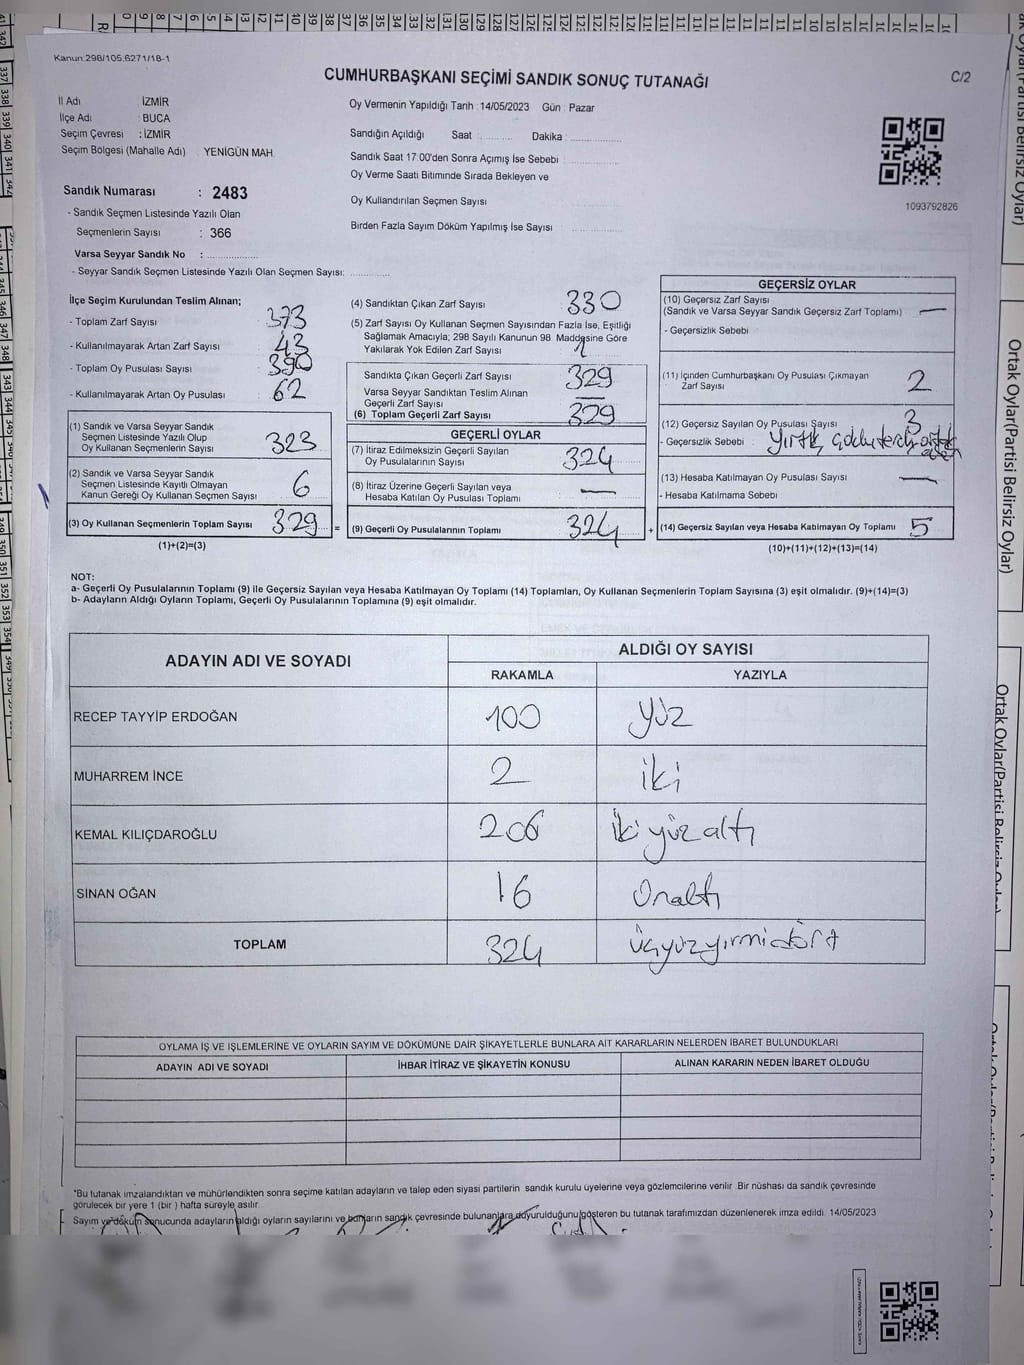 Kanun:298/105;6271/18-1
CUMHURBAŞKANI SEÇİMİ SANDIK SONUÇ TUTANAĞI
C/2
İl Adı : İZMİR
İlçe Adı : BUCA
Seçim Çevresi : İZMİR
Seçim Bölgesi (Mahalle Adı) : YENİGÜN MAH.
Oy Vermenin Yapıldığı Tarih : 14/05/2023 Gün : Pazar
Sandığın Açıldığı Saat Dakika :
Sandık Saat 17:00'den Sonra Açımış İse Sebebi
Oy Verme Saati Bitiminde Sırada Bekleyen ve
Oy Kullandırılan Seçmen Sayısı
Birden Fazla Sayım Döküm Yapılmış İse Sayısı
1093792826
Sandık Numarası : 2483
- Sandık Seçmen Listesinde Yazılı Olan
Seçmenlerin Sayısı : 366
Varsa Seyyar Sandık No :
- Seyyar Sandık Seçmen Listesinde Yazılı Olan Seçmen Sayısı:
İlçe Seçim Kurulundan Teslim Alınan;
- Toplam Zarf Sayısı 373
- Kullanılmayarak Artan Zarf Sayısı 43
- Toplam Oy Pusulası Sayısı 390
- Kullanılmayarak Artan Oy Pusulası 62
(1) Sandık ve Varsa Seyyar Sandık
Seçmen Listesinde Yazılı Olup
Oy Kullanan Seçmenlerin Sayısı 323
(2) Sandık ve Varsa Seyyar Sandık
Seçmen Listesinde Kayıtlı Olmayan
Kanun Gereği Oy Kullanan Seçmen Sayısı 6
(3) Oy Kullanan Seçmenlerin Toplam Sayısı 329 =
(1)+(2)=(3)
(4) Sandıktan Çıkan Zarf Sayısı 330
(5) Zarf Sayısı Oy Kullanan Seçmen Sayısından Fazla İse, Eşitliği
Sağlamak Amacıyla; 298 Sayılı Kanunun 98 Maddesine Göre
Yakılarak Yok Edilen Zarf Sayısı 1
Sandıkta Çıkan Geçerli Zarf Sayısı 329
Varsa Seyyar Sandıktan Teslim Alınan
Geçerli Zarf Sayısı —
(6) Toplam Geçerli Zarf Sayısı 329
GEÇERLİ OYLAR
(7) İtiraz Edilmeksizin Geçerli Sayılan
Oy Pusulalarının Sayısı 324
(8) İtiraz Üzerine Geçerli Sayılan veya
Hesaba Katılan Oy Pusulası Toplamı —
(9) Geçerli Oy Pusulalarının Toplamı 324 +
GEÇERSİZ OYLAR
(10) Geçersiz Zarf Sayısı
(Sandık ve Varsa Seyyar Sandık Geçersiz Zarf Toplamı) —
- Geçersizlik Sebebi
(11) İçinden Cumhurbaşkanı Oy Pusulası Çıkmayan
Zarf Sayısı 2
(12) Geçersiz Sayılan Oy Pusulası Sayısı 3
- Geçersizlik Sebebi : Yırtık,
(13) Hesaba Katılmayan Oy Pusulası Sayısı —
- Hesaba Katılmama Sebebi
(14) Geçersiz Sayılan veya Hesaba Katılmayan Oy Toplamı 5
(10)+(11)+(12)+(13)=(14)
NOT:
a- Geçerli Oy Pusulalarının Toplamı (9) ile Geçersiz Sayılan veya Hesaba Katılmayan Oy Toplamı (14) Toplamları, Oy Kullanan Seçmenlerin Toplam Sayısına (3) eşit olmalıdır. (9)+(14)=(3)
b- Adayların Aldığı Oyların Toplamı, Geçerli Oy Pusulalarının Toplamına (9) eşit olmalıdır.
ADAYIN ADI VE SOYADI
ALDIĞI OY SAYISI
RAKAMLA YAZIYLA
RECEP TAYYİP ERDOĞAN 100 Yüz
MUHARREM İNCE 2 iki
KEMAL KILIÇDAROĞLU 206 İki yüz altı
SİNAN OĞAN 16 Onaltı
TOPLAM 324 Üçyüzyirmidört
OYLAMA İŞ VE İŞLEMLERİNE VE OYLARIN SAYIM VE DÖKÜMÜNE DAİR ŞİKAYETLERLE BUNLARA AİT KARARLARIN NELERDEN İBARET BULUNDUKLARI
ADAYIN ADI VE SOYADI İHBAR İTİRAZ VE ŞİKAYETİN KONUSU ALINAN KARARIN NEDEN İBARET OLDUĞU
*Bu tutanak imzalandıktan ve mühürlendikten sonra seçime katılan adayların ve talep eden siyasi partilerin sandık kurulu üyelerine veya gözlemcilerine verilir. Bir nüshası da sandık çevresinde
görülecek bir yere 1 (bir) hafta süreyle asılır.
Sayım ve döküm sonucunda adayların aldığı oyların sayılarını ve bunların sandık çevresinde bulunanlara duyurulduğunu gösteren bu tutanak tarafımızdan düzenlenerek imza edildi. 14/05/2023
Ortak Oylar(Partisi Belirsiz Oylar)
Ortak Oylar(Partisi Belirsiz Oylar)